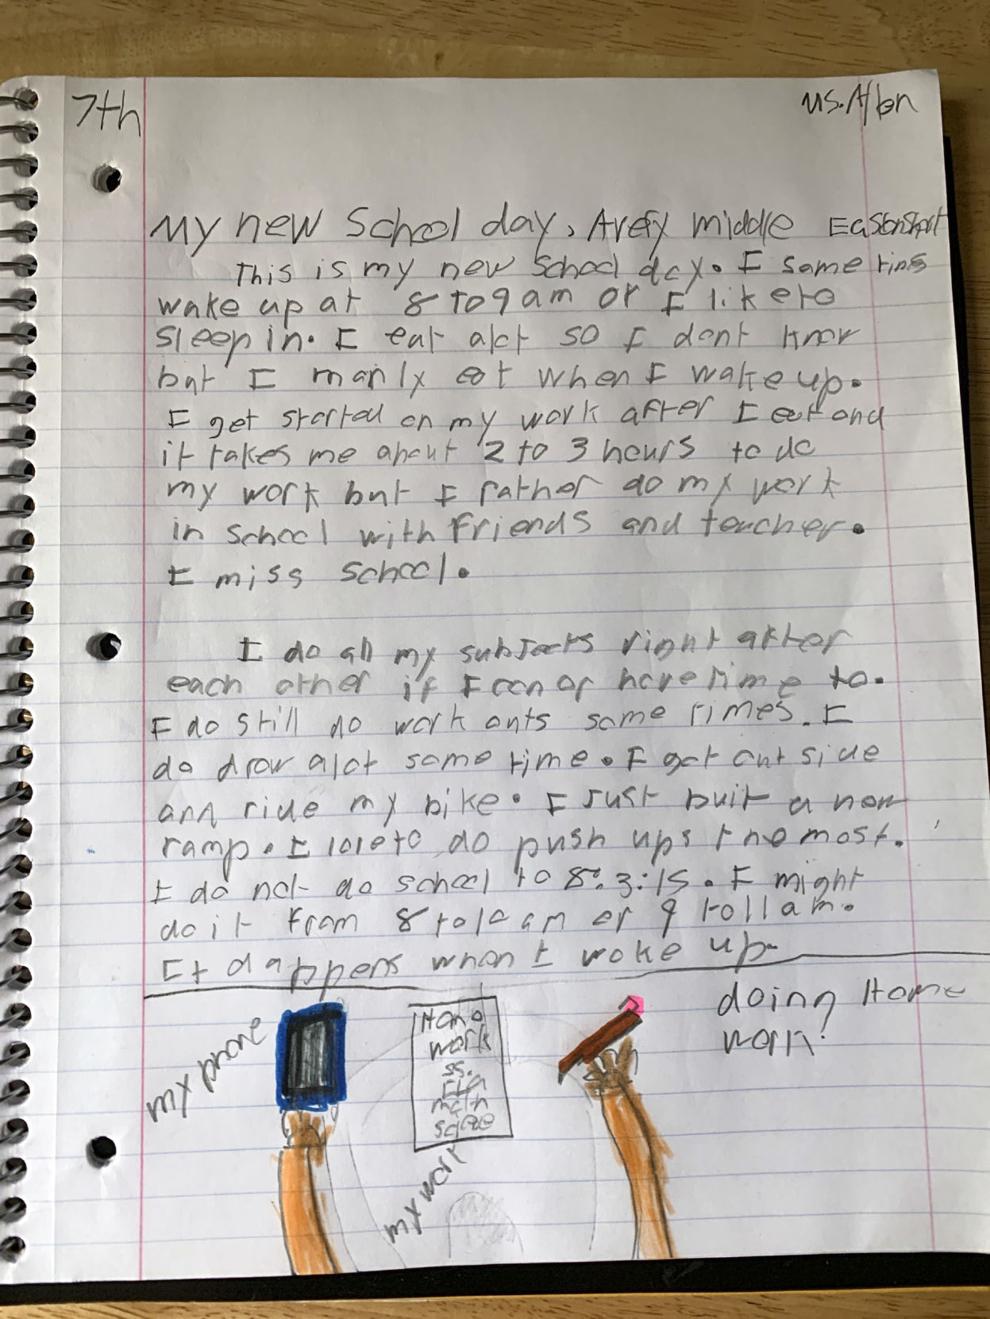 7th
My new School day, Avery middle
This is my new school day. I some
wake up at 8 to 9 am or I like to
sleep in. I eat alot so I dont know
but I manly eat when I wake up.
I get started on my work after I eat and
it takes me about 2 to 3 hours to do
my work but I rather do my work
in school with friends and teacher.
I miss school.
I do all my subjects right after
each other if I can or have time to.
I do still do work outs some times. I
do draw alot some time. I get out side
and ride my bike. I Just buit a new
ramp. I love to do push ups the most.
I do not do school to 8:3:15. I might
do it from 8 to 10 am or 9 to 11 am.
It dappens when I woke up
my phone
Home
work
ss.
ELA
math
my work
doing Home
work!